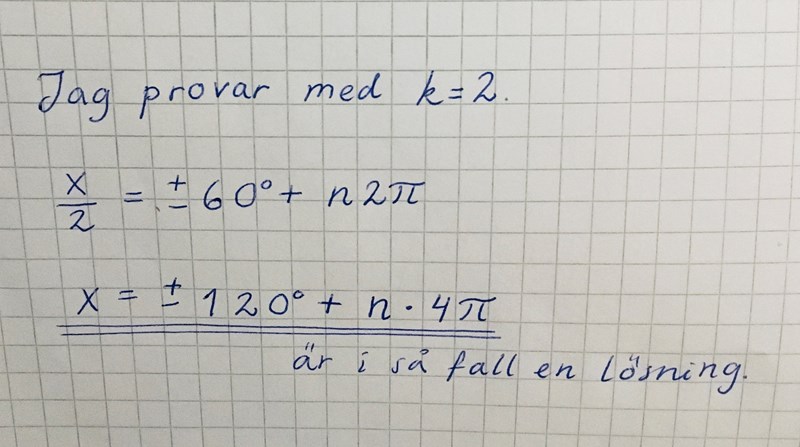 Jag provar med k=2.
x/2 = ± 60° + n2π
x = ± 120° + n · 4π
är i så fall en lösning.